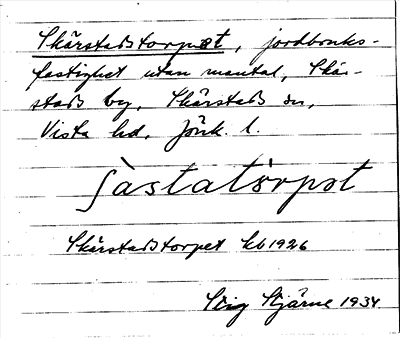 Skärstadstorpet, jordbruks-
fastighet utan mantal, Skär-
stads by, Skärstads sn,
Vista hd, Jönk. l.
ʃàstatòrpət
Skärstadstorpet kb 1926
Stig Stjärne 1934